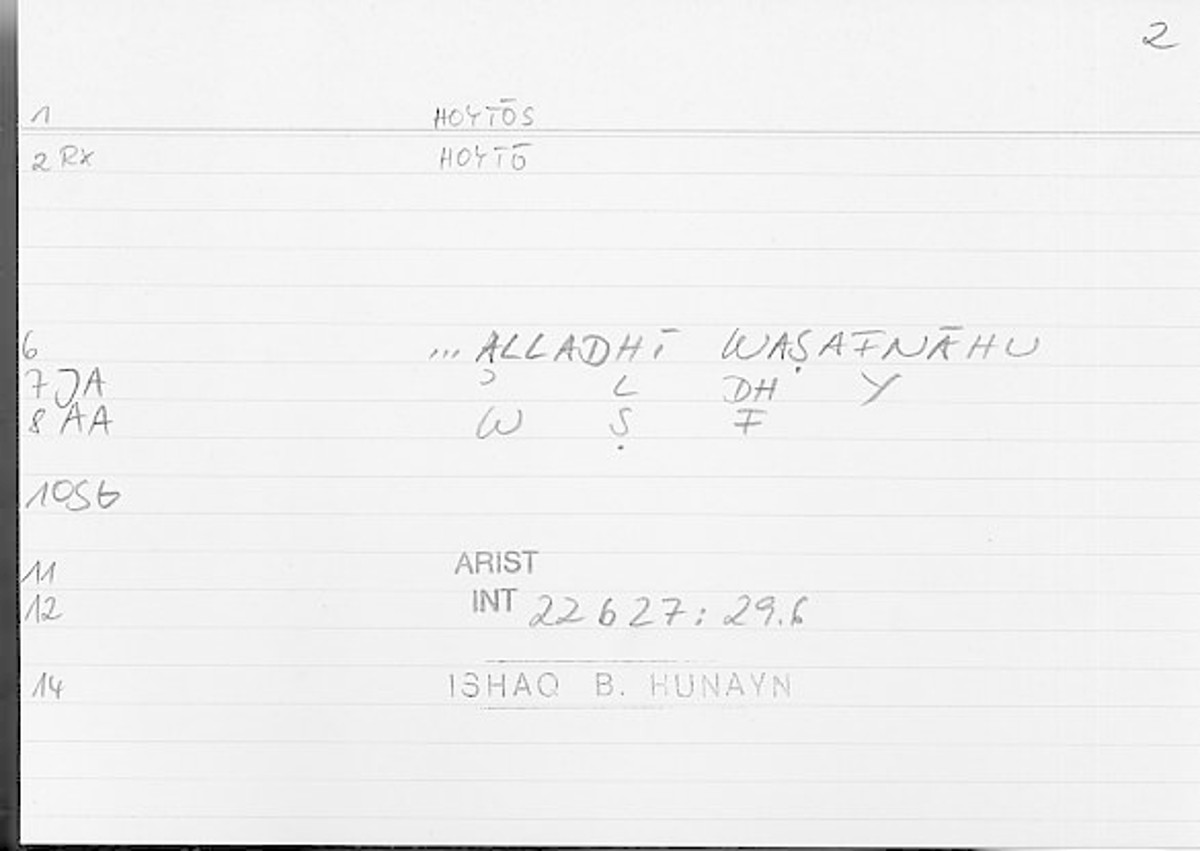 2
1 HOYTŌS
2 RX HOYTŌ
6 ... ALLADHĪ WAṢAFNĀHU
7 JA ʾ L DH Y
8 AA W Ṣ F
10 SG
11 ARIST
12 INT 22 b 27 : 29.6
14 ISHAQ B. HUNAYN